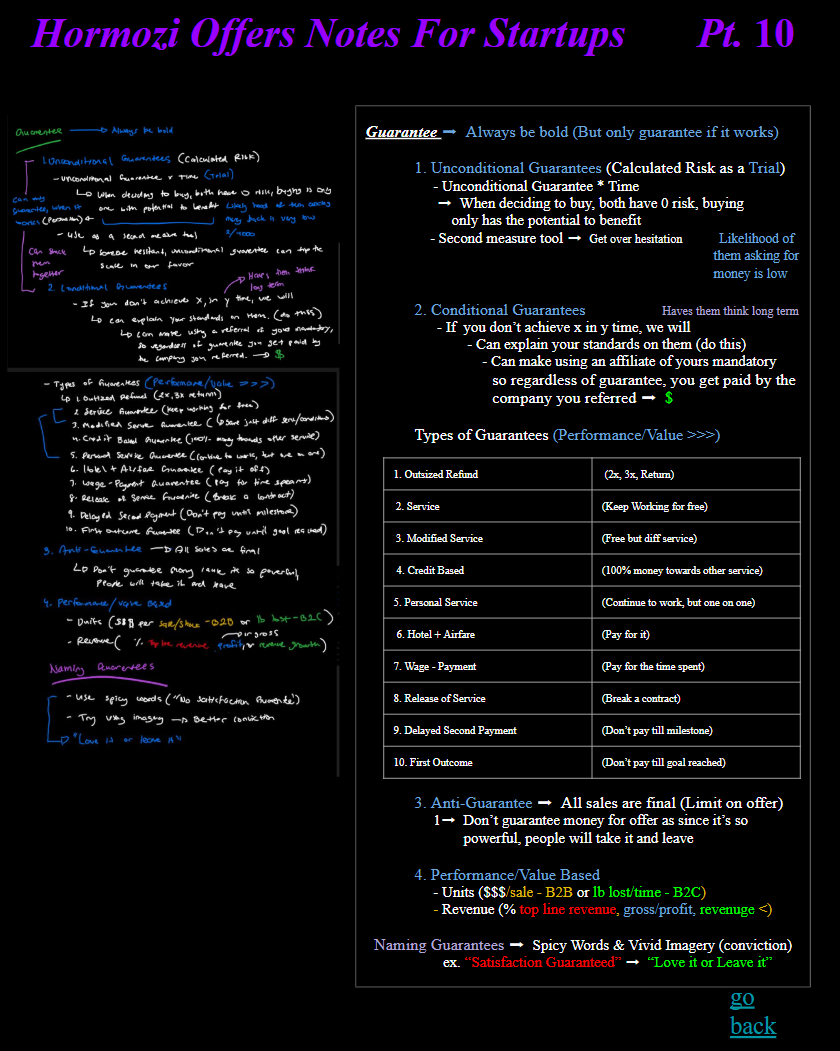 Hormozi Offers Notes For Startups Pt. 10
Guarantee → Always be bold
1. Unconditional Guarantees (Calculated Risk)
- Unconditional Guarantee x Time (Trial)
↳ When deciding to buy, both have 0 risk, buying is only
one with potential to benefit
Likely hood of them asking
money back is very low
5/4000
Can only
guarantee, when it
works (Permission)
- Use as a second measure tool
↳ Someone hesitant, unconditional guarantee can tip the
scale in our favor
Can stack
them
together
2. Conditional Guarantees
Haves them think
long term
- If you don't achieve x, in y time, we will
↳ can explain your standards on them. (do this)
↳ Can make using a referral of yours mandatory,
so regardless of guarantee you get paid by
the company you referred. → $
- Types of Guarantees (Performance/Value >>>)
↳ 1. Outsized Refund (2x, 3x return)
2. Service Guarantee (keep working for free)
3. Modified Service Guarantee (
4. Credit Based Guarantee (100% money towards other service)
5. Personal Service Guarantee (Continue to work, but one on one)
6. Hotel + Airfare Guarantee (Pay it off)
7. Wage-Payment Guarantee (Pay for time spent)
8. Release of Service Guarantee (Break a contract)
9. Delayed Second Payment (Don't pay until milestone)
10. First Outcome Guarantee (Don't pay until goal reached)
3. Anti-Guarantee → All sales are final
↳ Don't guarantee money since its so powerful,
people will take it and leave
4. Performance/value Based
- Units ($$$ per sale/show - B2B or lb lost - B2C)
- Revenue ( % Top line revenue, profit, or revenue growth)
or gross
Naming Guarantees
- Use spicy words ("No satisfaction Guarantee")
- Try using imagery → Better conviction
↳ "Love it or leave it"
Guarantee → Always be bold (But only guarantee if it works)
1. Unconditional Guarantees (Calculated Risk as a Trial)
- Unconditional Guarantee * Time
→ When deciding to buy, both have 0 risk, buying
only has the potential to benefit
- Second measure tool → Get over hesitation
Likelihood of
them asking for
money is low
2. Conditional Guarantees Haves them think long term
- If you don't achieve x in y time, we will
- Can explain your standards on them (do this)
- Can make using an affiliate of yours mandatory
so regardless of guarantee, you get paid by the
company you referred → $
Types of Guarantees (Performance/Value >>>)
1. Outsized Refund (2x, 3x, Return)
2. Service (Keep Working for free)
3. Modified Service (Free but diff service)
4. Credit Based (100% money towards other service)
5. Personal Service (Continue to work, but one on one)
6. Hotel + Airfare (Pay for it)
7. Wage - Payment (Pay for the time spent)
8. Release of Service (Break a contract)
9. Delayed Second Payment (Don't pay till milestone)
10. First Outcome (Don't pay till goal reached)
3. Anti-Guarantee → All sales are final (Limit on offer)
1→ Don't guarantee money for offer as since it's so
powerful, people will take it and leave
4. Performance/Value Based
- Units ($$$/sale - B2B or lb lost/time - B2C)
- Revenue (% top line revenue, gross/profit, revenuge <)
Naming Guarantees → Spicy Words & Vivid Imagery (conviction)
ex. "Satisfaction Guaranteed" → "Love it or Leave it"
go
back